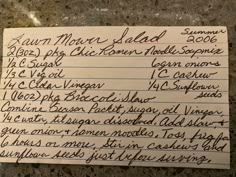 Lawn Mower Salad Summer 2006
2 (3oz) pkg Chic Ramen Noodle Soup mix
1/2 C Sugar 6 grn onions
1/3 C Veg oil 1 C cashew
1/4 C Cider Vinegar 1/4 C Sunflower seeds
1 (16oz) pkg Broccoli Slaw
Combine Season Packet, sugar, oil, Vinegar
1/4 c water, til sugar dissolved. Add slaw &
green onion & ramen noodles. Toss, frig for
6 hours or more. Stir in cashews and
sunflower seeds just before serving.